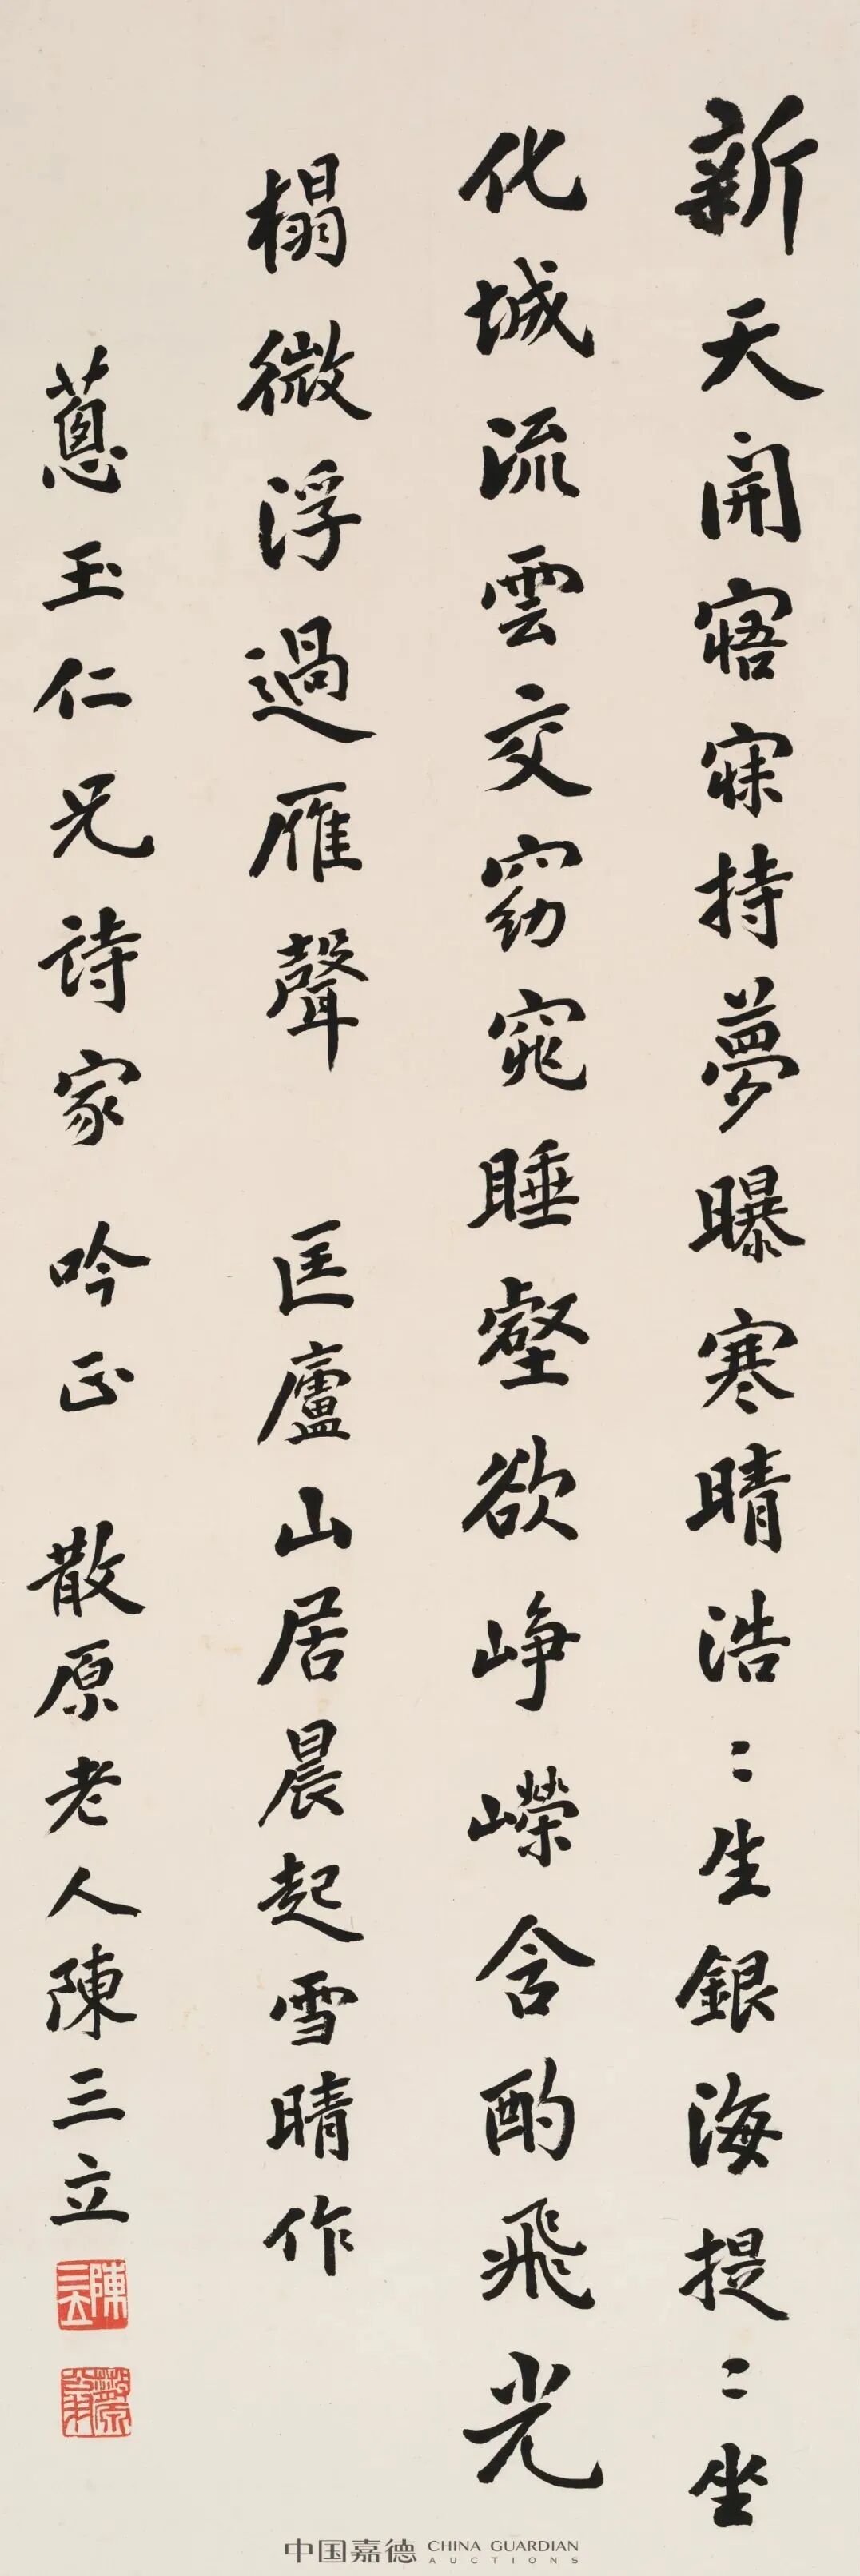 新天開寤寐持夢曝寒晴浩〻生銀海提〻坐
化城流雲交窈窕睡壑欲崢嶸含酌飛光
榻微浮過雁聲 匡廬山居晨起雪晴作
蔥玉仁兄詩家 吟正 散原老人陳三立
陳三立
散原
中国嘉德 CHINA GUARDIAN
AUCTIONS